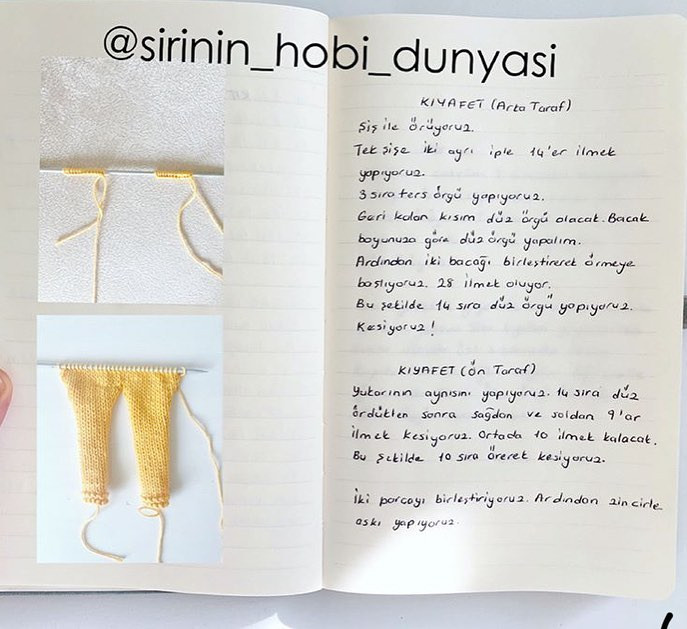 @sirinin_hobi_dunyasi
KIYAFET (Arka Taraf)
Şiş ile örüyoruz.
Tek şişe iki ayrı iple 14'er ilmek
yapıyoruz.
3 sıra ters örgü yapıyoruz.
Geri kalan kısım düz örgü olacak. Bacak
boyunuza göre düz örgü yapalım.
Ardından iki bacağı birleştirerek örmeye
başlıyoruz. 28 ilmek oluyor.
Bu şekilde 14 sıra düz örgü yapıyoruz.
Kesiyoruz!
KIYAFET (Ön Taraf)
Yukarının aynısını yapıyoruz. 14 sıra düz
ördükten sonra sağdan ve soldan 9'ar
ilmek kesiyoruz. Ortada 10 ilmek kalacak.
Bu şekilde 10 sıra örerek kesiyoruz.
İki parçayı birleştiriyoruz. Ardından zincirle
askı yapıyoruz.